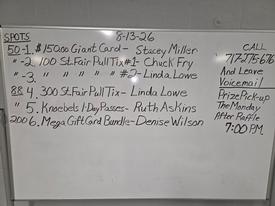 8-13-26
SPOTS
50-1. $150.00 Giant Card - Stacey Miller
" -2. 100 St. Fair Pull Tix #1 - Chuck Fry
" -3. " " " " " #2 - Linda Lowe
88 4. 300 St. Fair Pull Tix - Linda Lowe
" 5. Knoebels 1-Day Passes - Ruth Askins
200 6. Mega Gift Card Bundle - Denise Wilson
CALL
717-275-676
And Leave
Voicemail
Prize Pick-up
The Monday
After Raffle
7:00 PM.